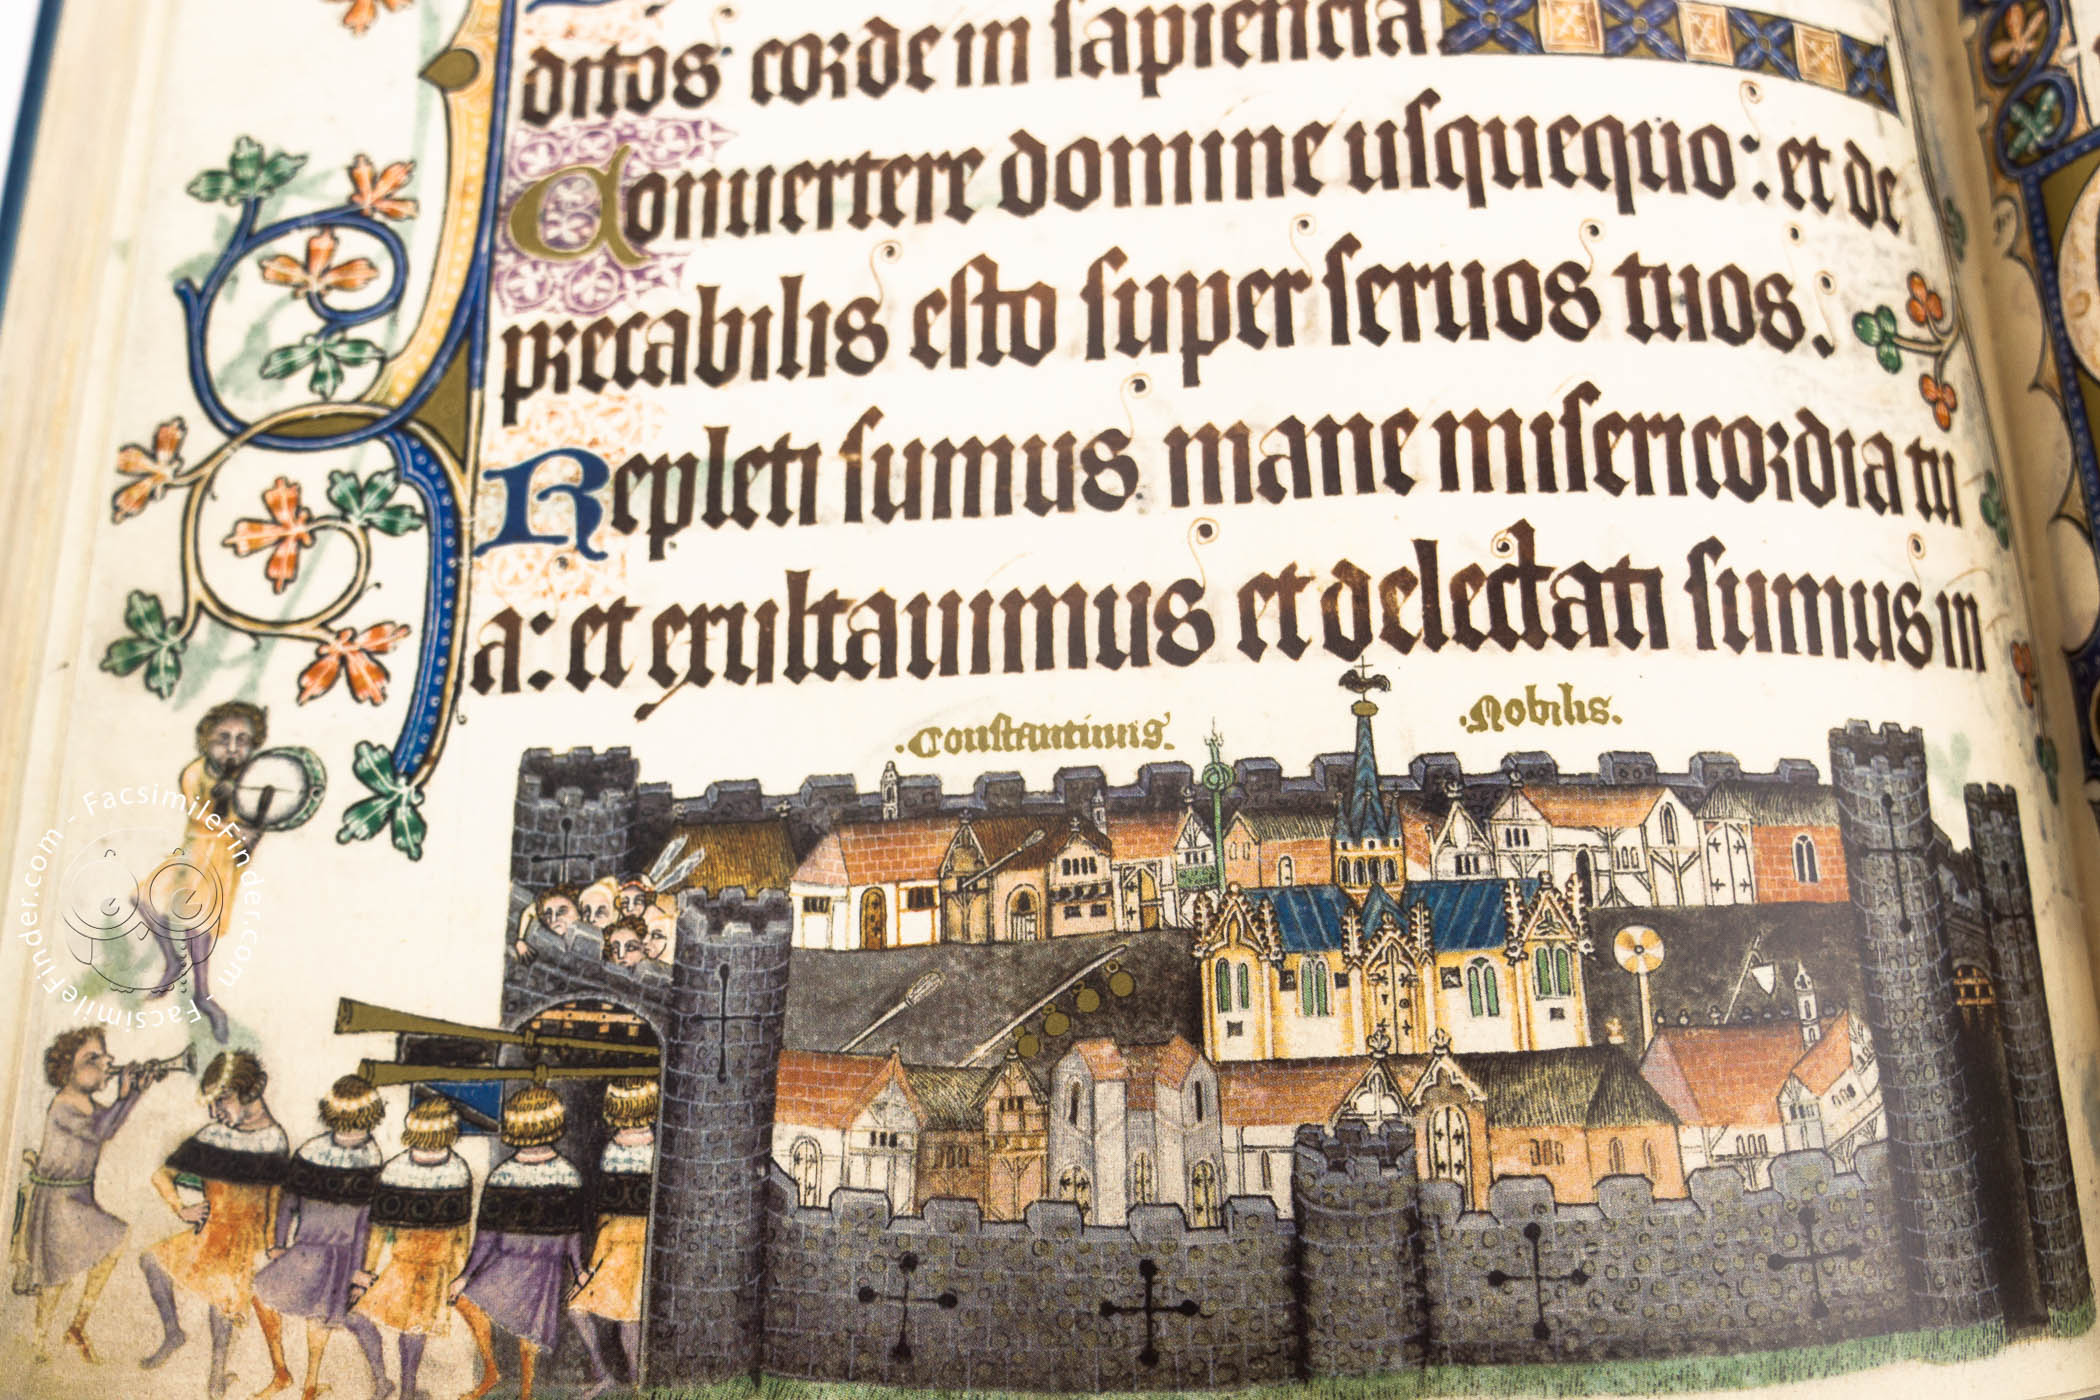 ditos corde in sapiencia
Conuertere domine usquequo: et de
precabilis esto super seruos tuos.
Repleti sumus mane misericordia tu
a: et exultauimus et delectati sumus in
.Constantinus.
.Nobilis.
FacsimileFinder.com - FacsimileFinder.com - FacsimileFinder.com -